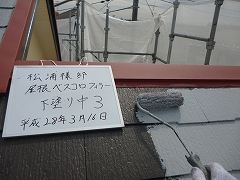 松浦様邸
屋根ベスコロフィラー
下塗り中3
平成28年3月16日